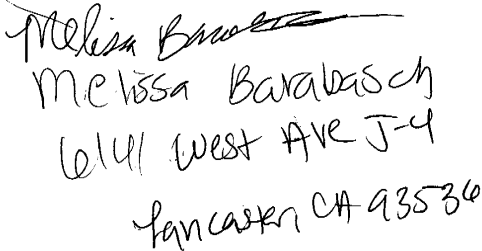 Melissa
Melissa Barabasch
6141 West Ave J-4
Lancaster, CA 93536